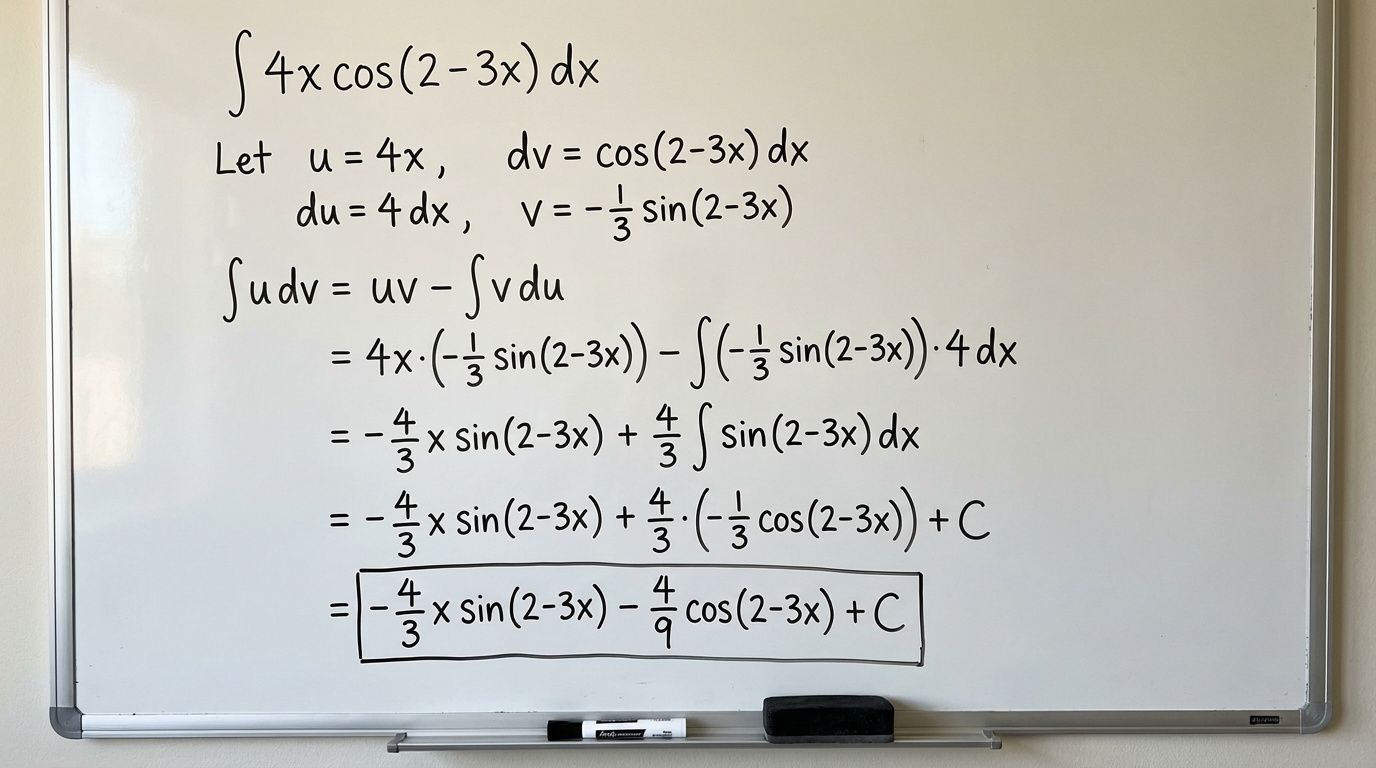 ∫ 4x cos(2-3x) dx
Let u = 4x, dv = cos(2-3x) dx
du = 4 dx, v = -1/3 sin(2-3x)
∫ u dv = uv - ∫ v du
= 4x·(-1/3 sin(2-3x)) - ∫(-1/3 sin(2-3x))·4 dx
= -4/3 x sin(2-3x) + 4/3 ∫ sin(2-3x) dx
= -4/3 x sin(2-3x) + 4/3·(-1/3 cos(2-3x)) + C
= -4/3 x sin(2-3x) - 4/9 cos(2-3x) + C